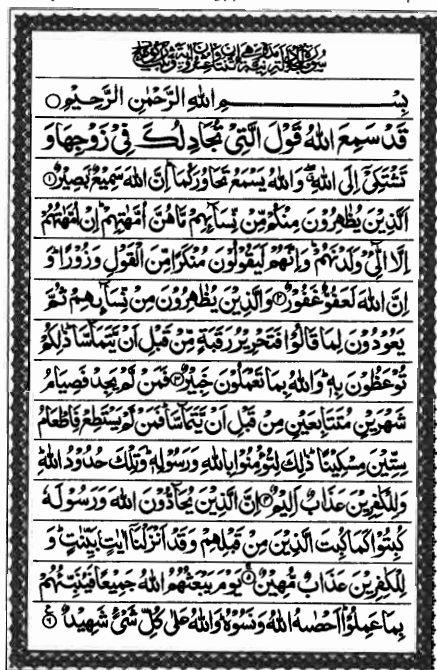 بِسْمِ اللهِ الرَّحْمٰنِ الرَّحِيْمِ
قَدْ سَمِعَ اللهُ قَوْلَ الَّتِيْ تُجَادِلُكَ فِيْ زَوْجِهَا وَ
تَشْتَكِيْٓ اِلَى اللهِ ۖ وَاللهُ يَسْمَعُ تَحَاوُرَكُمَا ؕ اِنَّ اللهَ سَمِيْعٌۢ بَصِيْرٌ ۝۱
اَلَّذِيْنَ يُظٰهِرُوْنَ مِنْكُمْ مِّنْ نِّسَآئِهِمْ مَّا هُنَّ اُمَّهٰتِهِمْ ؕ اِنْ اُمَّهٰتُهُمْ
اِلَّا الّٰٓـِٔيْ وَلَدْنَهُمْ ؕ وَاِنَّهُمْ لَيَقُوْلُوْنَ مُنْكَرًا مِّنَ الْقَوْلِ وَزُوْرًا ؕ وَ
اِنَّ اللهَ لَعَفُوٌّ غَفُوْرٌ ۝۲ وَالَّذِيْنَ يُظٰهِرُوْنَ مِنْ نِّسَآئِهِمْ ثُمَّ
يَعُوْدُوْنَ لِمَا قَالُوْا فَتَحْرِيْرُ رَقَبَةٍ مِّنْ قَبْلِ اَنْ يَّتَمَآسَّا ؕ ذٰلِكُمْ
تُوْعَظُوْنَ بِهٖ ؕ وَاللهُ بِمَا تَعْمَلُوْنَ خَبِيْرٌ ۝۳ فَمَنْ لَّمْ يَجِدْ فَصِيَامُ
شَهْرَيْنِ مُتَتَابِعَيْنِ مِنْ قَبْلِ اَنْ يَّتَمَآسَّا ۚ فَمَنْ لَّمْ يَسْتَطِعْ فَاِطْعَامُ
سِتِّيْنَ مِسْكِيْنًا ؕ ذٰلِكَ لِتُؤْمِنُوْا بِاللهِ وَرَسُوْلِهٖ ؕ وَتِلْكَ حُدُوْدُ اللهِ ؕ
وَلِلْكٰفِرِيْنَ عَذَابٌ اَلِيْمٌ ۝۴ اِنَّ الَّذِيْنَ يُحَآدُّوْنَ اللهَ وَرَسُوْلَهٗ
كُبِتُوْا كَمَا كُبِتَ الَّذِيْنَ مِنْ قَبْلِهِمْ وَقَدْ اَنْزَلْنَآ اٰيٰتٍۭ بَيِّنٰتٍ ؕ وَ
لِلْكٰفِرِيْنَ عَذَابٌ مُّهِيْنٌ ۝۵ يَوْمَ يَبْعَثُهُمُ اللهُ جَمِيْعًا فَيُنَبِّئُهُمْ
بِمَا عَمِلُوْا ؕ اَحْصٰىهُ اللهُ وَنَسُوْهُ ؕ وَاللهُ عَلٰى كُلِّ شَيْءٍ شَهِيْدٌ ۝۶